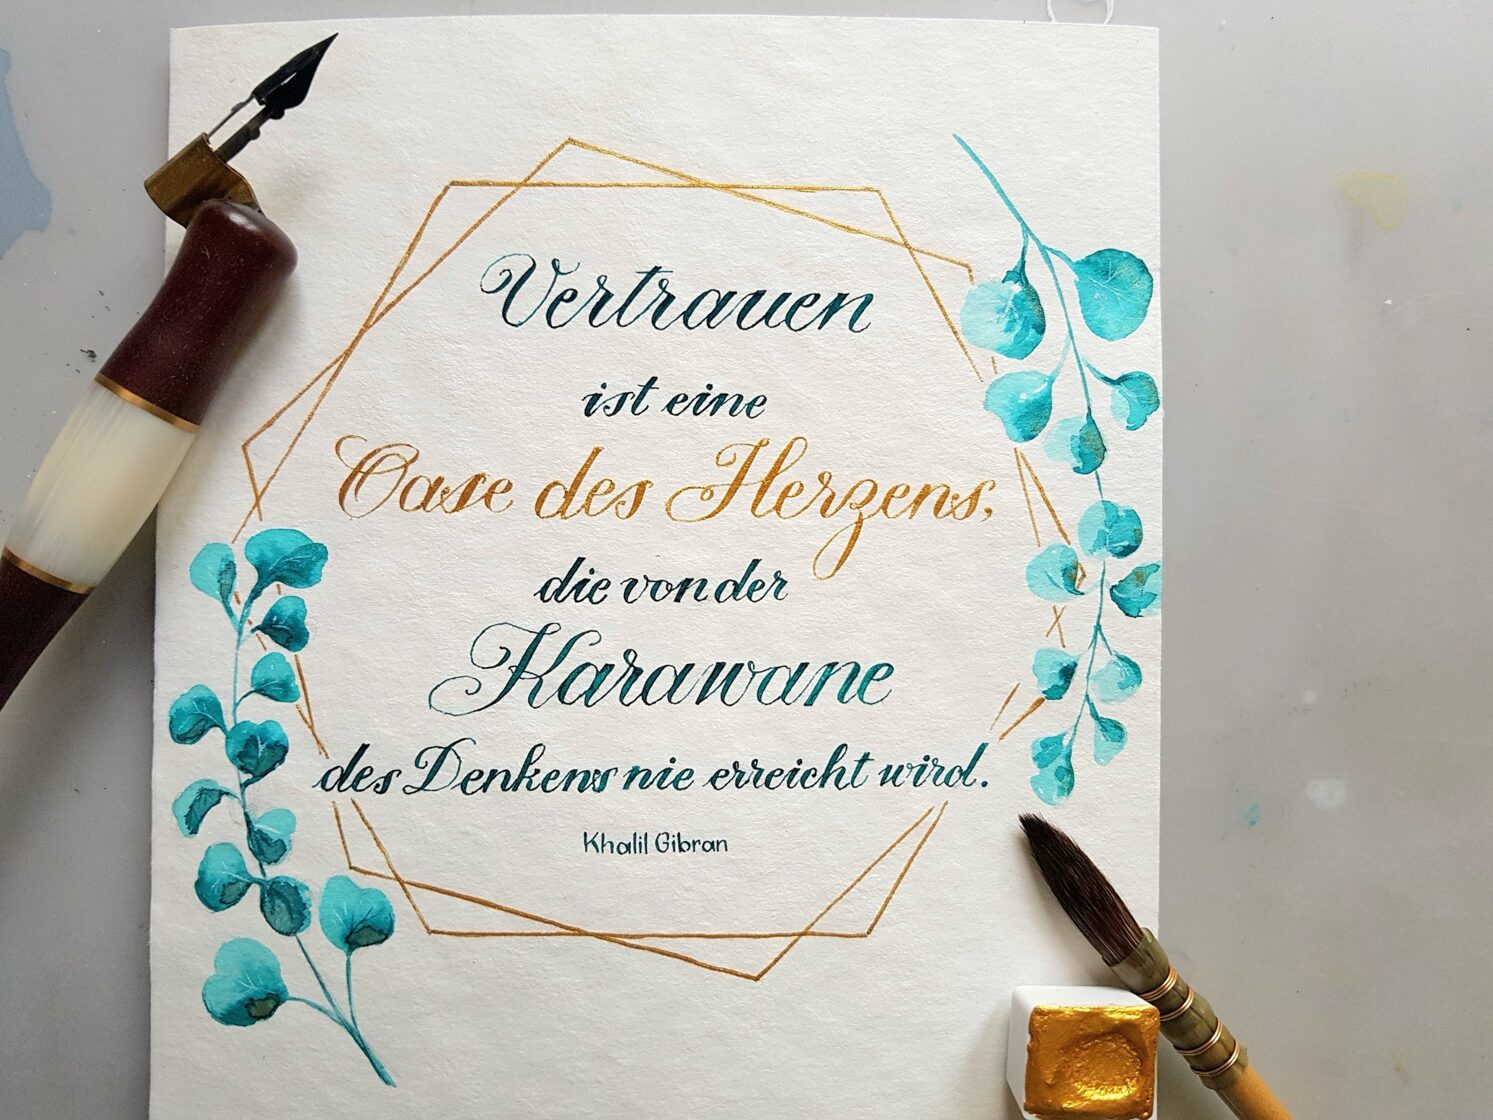 Vertrauen
ist eine
Oase des Herzens,
die von der
Karawane
des Denkens nie erreicht wird.
Khalil Gibran